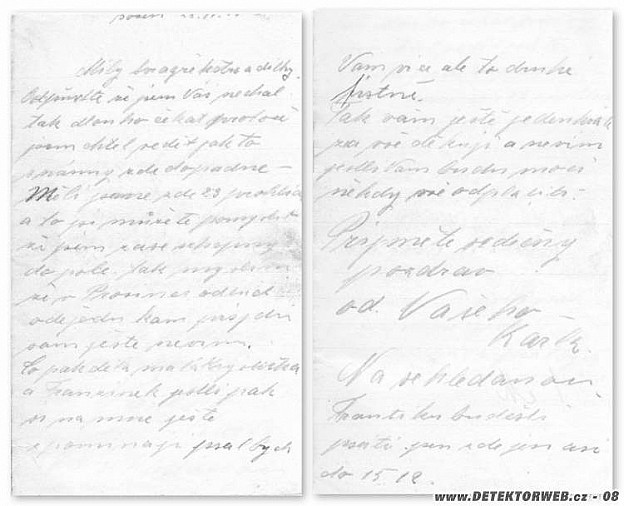 Milý švagře sestro a dítky.
Odpusťte že jsem Vás nechal
tak dlouho čekat protože
jsem chtěl vědět jak to
se mnou zde dopadne –
Měli jsme zde 23 prohlídku
a to si můžete pomyslet
že jsem zase schopný
do pole. Tak myslím
že v Prosinci odsud
odejedu kam přijdu
sám ještě nevím.
Co pak dělá malá
a Frantinek jestli pak
si na mne ještě
vzpomínají psal bych
Vám více ale to druhé
ústně.
Tak vám ještě jedenkráte
za vše děkuji a nevím
jestli Vám budu moci
někdy vše odplatit.
Přijměte srdečný
pozdrav
od Vašeho
Na shledanou.
Frantíku budeš-li
psáti jsem zde jen asi
do 15.12.
www.DETEKTORWEB.cz - 08